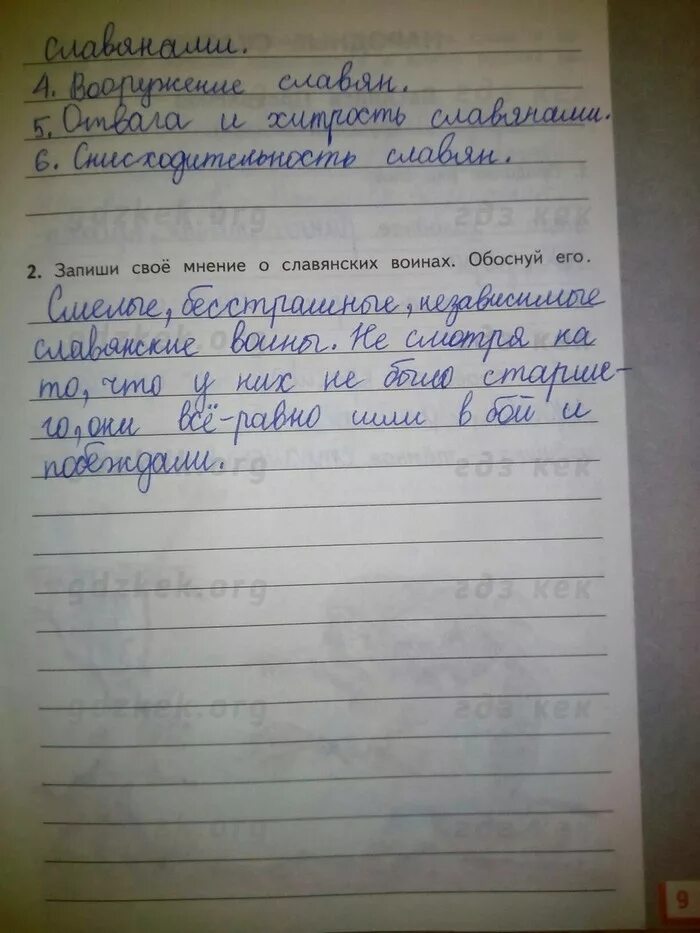 славянами.
4. Вооружение славян.
5. Отвага и хитрость славянами.
6. Снисходительность славян.
gdzkek.org гдз кек
2. Запиши своё мнение о славянских воинах. Обоснуй его.
Смелые, бесстрашные, независимые
славянские воины. Не смотря на
то, что у них не было старше-
го, они всё-равно шли в бой и
побеждали.
гдз кек
gdzkek.org гдз кек
gdzkek.org гдз кек
гдз кек
9